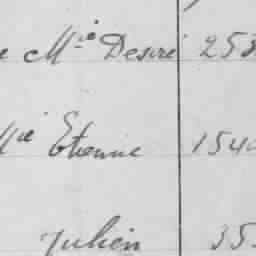 e M^ie Desiré 253
M^ie Etienne 154
Julien 35